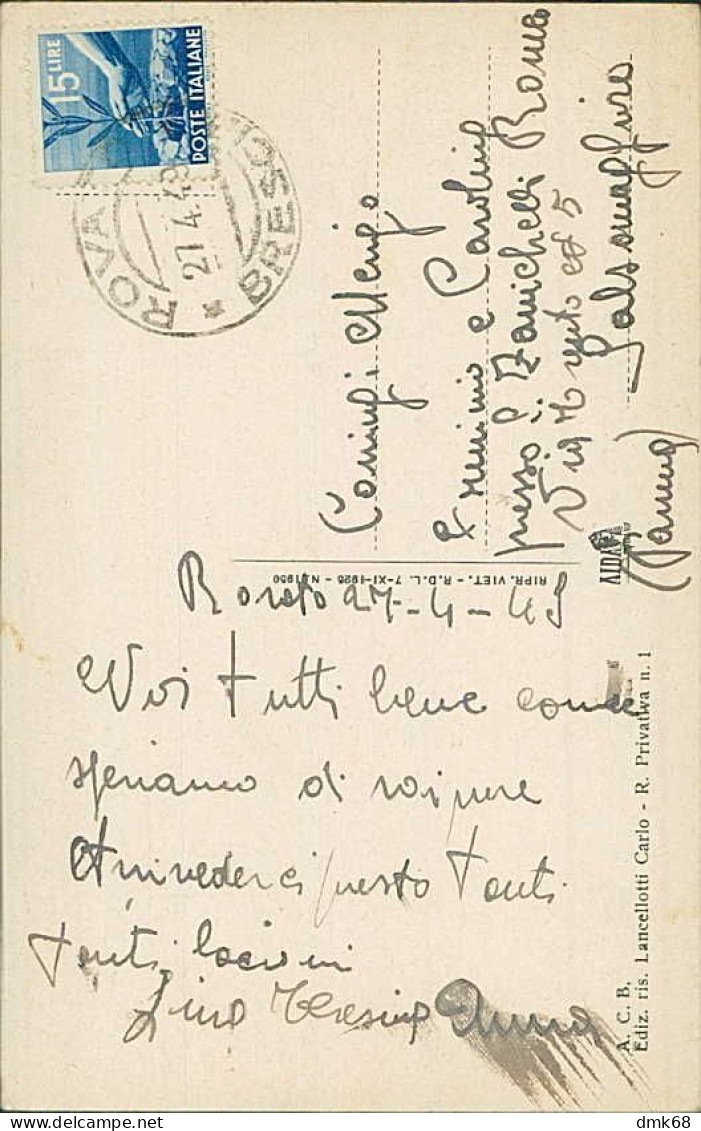 15 LIRE
POSTE ITALIANE
27.4.49
BRESC
Coniugi
Erminio e Carolina
presso Zanichelli Romeo
Via Trento N° 5
Salsomaggiore
(Parma)
RIPR. VIET. - R.D.L. 7-XI-1925 - N. 1950
AIDA
Rovato 27-4-49
Noi tutti bene come
speriamo di voi pure
Arrivederci presto tanti
tanti bacioni
Lina Teresina Anna
A. C. B.
Ediz. ris. Lancellotti Carlo - R. Privativa n. 1
delcampe.net
dmk68